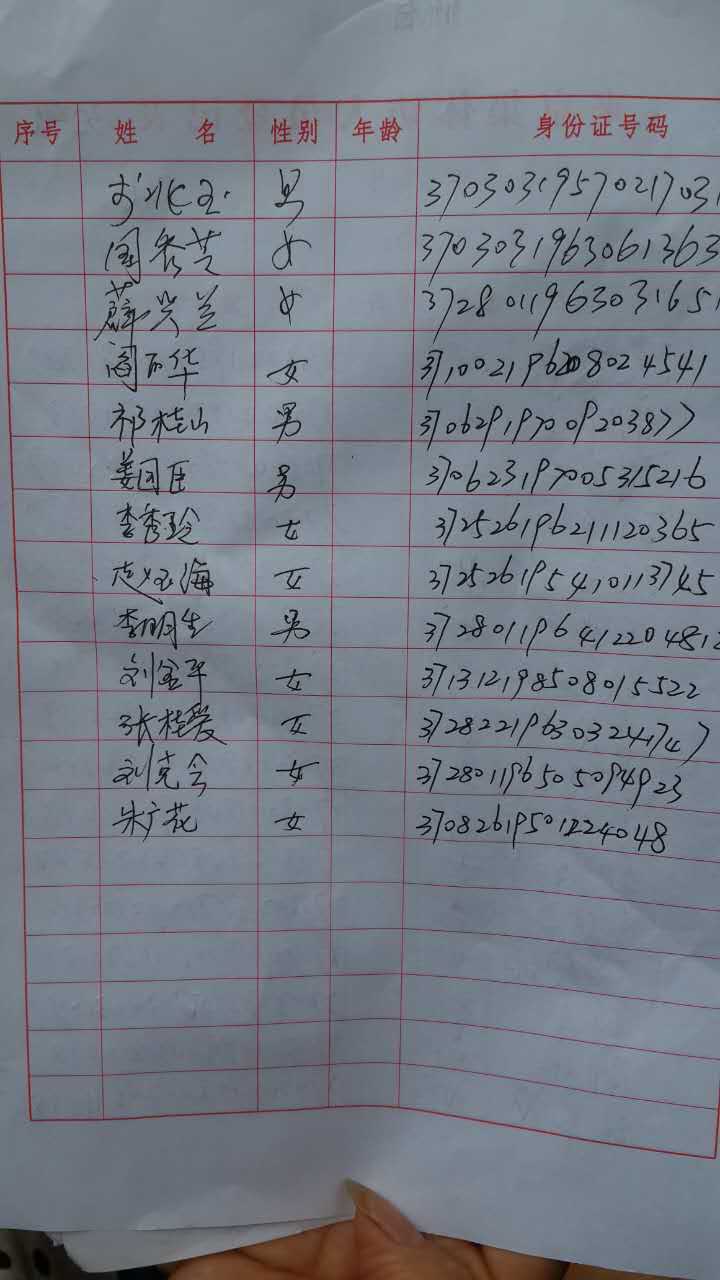 序号 姓 名 性别 年龄 身份证号码
男 37030319570217031
女 3703031963061363
薛兴兰 女 3728011963031651
阎丽华 女 371002196208024541
祁桂山 男 370629197009203877
姜国臣 男 370623197005315216
李秀玲 女 372526196211120365
赵玉海 女 372526195410113745
李明生 男 372801196412204812
刘金平 女 371312198508015522
张桂爱 女
刘克会 女 372801196505094923
朱广花 女 370826195012224048